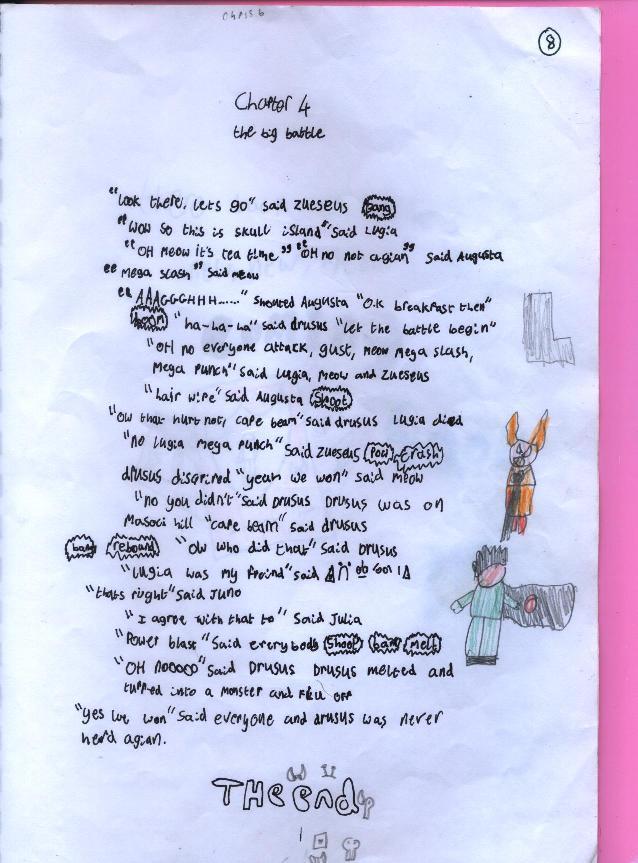 Chris.b
8
Chapter 4
the big battle
"look there, lets go" said zueseus bang
"wow so this is skull island" said Lugia
"OH meow it's tea time" "OH no not agian" said Augusta
"mega slash" said meow
"AAAGGGHHH......" shouted Augusta "O.k breakfast then"
boom "ha-ha-ha" said drusus "let the battle begin"
"OH no everyone attack, gust, meow mega slash,
mega punch" said Lugia, meow and zueseus
"hair wipe" said Augusta shoot
"ow that hurt not, cape beam" said drusus Lugia died
"no lugia mega punch" said zueseus pow crash
drusus disapired "yeah we won" said meow
"no you didn't" said Drusus Drusus was on
Masaci hill "cape beam" said drusus
bang rebound "ow who did that" said Drusus
"Lugia was my freind" said
"thats right" said Juno
"I agree with that to" said Julia
"Power blast" said everybody shoot bang melt
"OH nooooo" said Drusus Drusus melted and
turned into a monster and flew off
"yes we won" said everyone and drusus was never
herd agian.
THE end